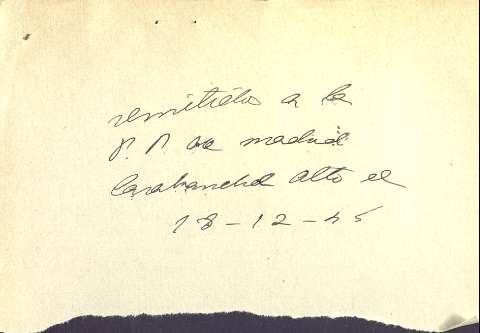 remitidos a la
P. P. de madrid
Carabanchel Alto el
18-12-45